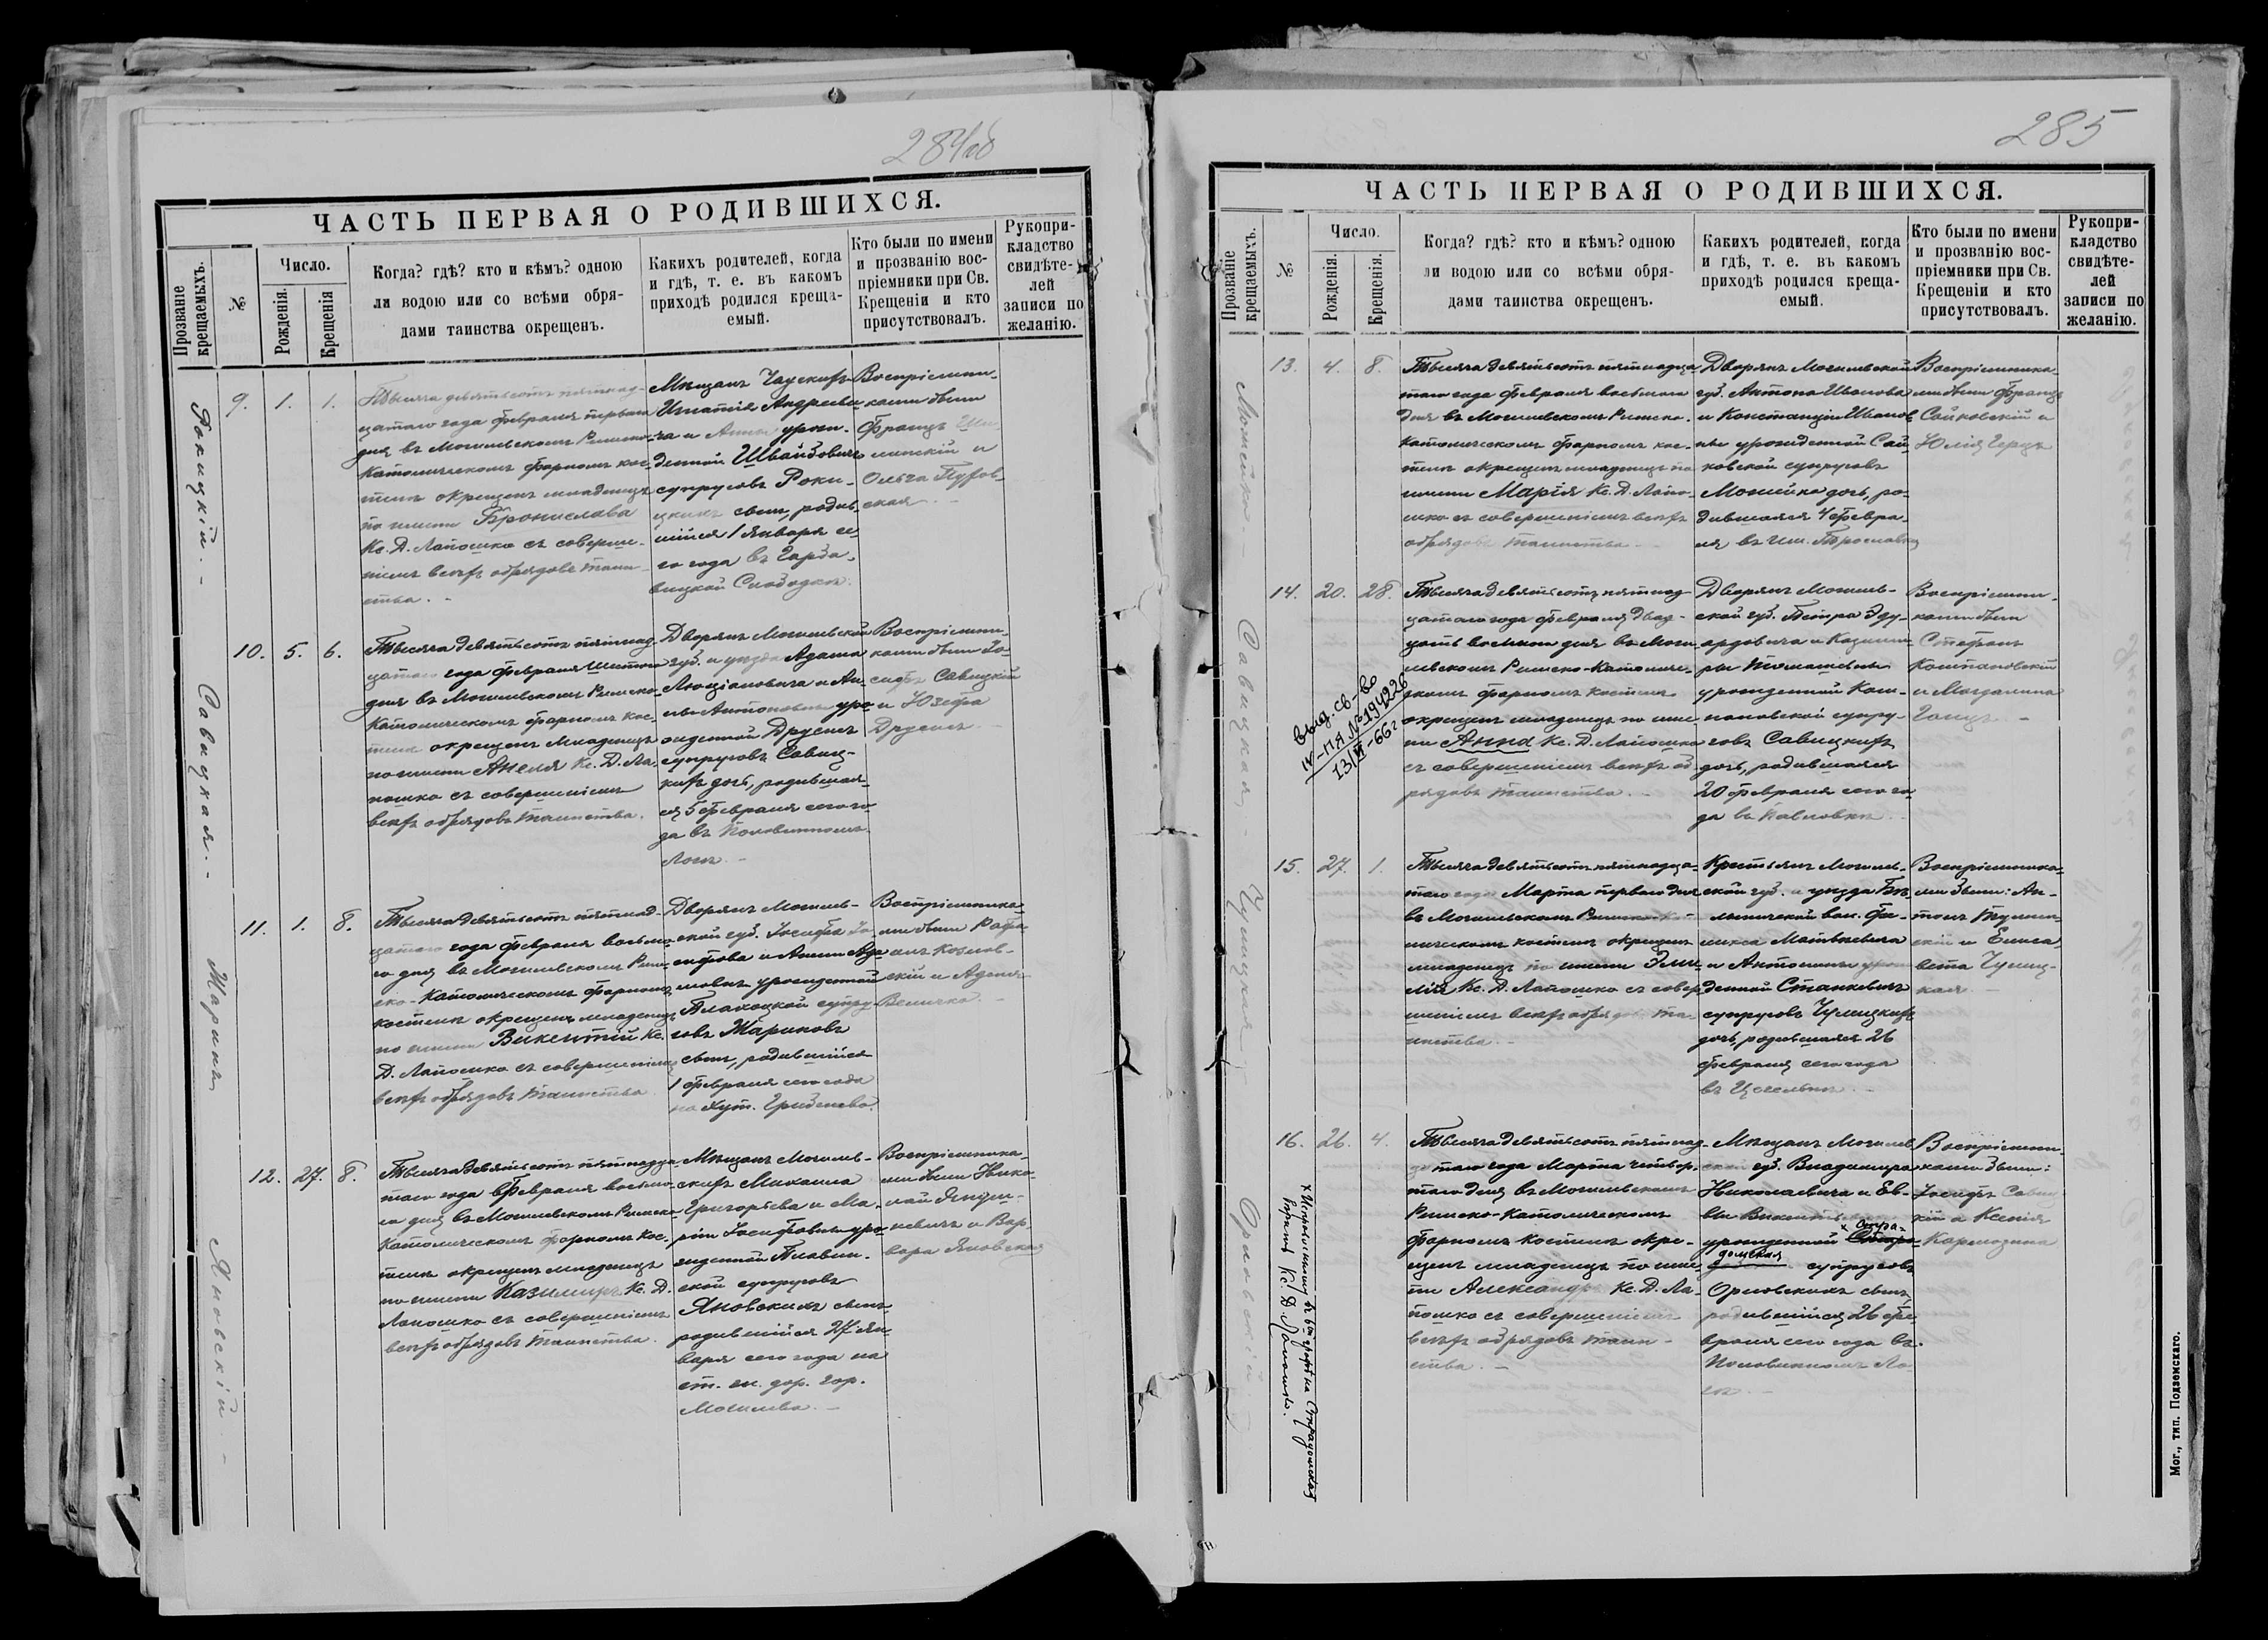 284об
ЧАСТЬ ПЕРВАЯ О РОДИВШИХСЯ.
Прозваніе крещаемыхъ.
№
Число.
Рожденія.
Крещенія
Когда? гдѣ? кто и кѣмъ? одною
ли водою или со всѣми обря-
дами таинства окрещенъ.
Какихъ родителей, когда
и гдѣ, т. е. въ какомъ
приходѣ родился креща-
емый.
Кто были по имени
и прозванію вос-
пріемники при Св.
Крещеніи и кто
присутствовалъ.
Рукопри-
кладство
свидѣте-
лей
записи по
желанію.
Рокицкій. -
9. 1. 1.
Тысяча девятьсотъ пятнад-
цатаго года февраля перваго
дня въ Могилевскомъ Римско-
Католическомъ фарномъ кос-
телѣ окрещенъ младенецъ
по имени Бронислава
Кс. Д. Лапошко съ соверше-
ніемъ всѣхъ обрядовъ таин-
ства. -
Мѣщанъ Чаускихъ
Игнатія Андрееви-
ча и Анны урож-
денной Швайдовичъ
супруговъ Роки-
цкихъ сынъ, родив-
шійся 1 Января се-
го года въ
Слободкѣ.
Воспріемни-
ками были
Францъ
и
Ольга
10. 5. 6.
Савицкая. -
Тысяча девятьсотъ пятнад-
цатаго года февраля шестого
дня въ Могилевскомъ Римско-
Католическомъ фарномъ кос-
телѣ окрещенъ младенецъ
по имени Анеля Кс. Д. Ла-
пошко съ совершеніемъ
всѣхъ обрядовъ таинства.
Дворянъ Могилевской
губ. и уѣзда Адама
Люціановича и Ан-
ны Антоновны уро-
жденной Друсинъ
супруговъ Савиц-
кихъ дочь, родившая-
ся 5 февраля сего го-
да въ Половинномъ
Логѣ. -
Воспріемни-
ками были Іо-
сифъ Савицкій
и Юзефа
Друсинъ. -
11. 1. 8.
Жаринъ
Тысяча девятьсотъ пятнад-
цатаго года февраля восьмо-
го дня въ Могилевскомъ Рим-
ско-Католическомъ фарномъ
костелѣ окрещенъ младенецъ
по имени Викентій Кс.
Д. Лапошко съ совершеніемъ
всѣхъ обрядовъ таинства.
Дворянъ Могилев-
ской губ. Іосифа Іо-
сифова и Анны Ада-
мовны урожденной
супру-
говъ Жариновъ
сынъ, родившійся
1 февраля сего года
на хут.
Воспріемника-
ми были Рафа-
илъ Козлов-
скій и Аделя
Величко. -
12. 27. 8.
Яновскій. -
Тысяча девятьсотъ пятнадца-
таго года Февраля восьмо-
го дня въ Могилевскомъ Римско-
Католическомъ фарномъ кос-
телѣ окрещенъ младенецъ
по имени Казимиръ Кс. Д.
Лапошко съ совершеніемъ
всѣхъ обрядовъ таинства.
Мѣщанъ Могилев-
скихъ Михаила
Григорьева и Ма-
ріи Іосифовны уро-
жденной Плавин-
ской супруговъ
Яновскихъ сынъ
родившійся 27 Ян-
варя сего года на
ст. ж. дор. гор.
Могилева. -
Воспріемника-
ми были Нико-
лай
и Вар-
вара Яновская
285
ЧАСТЬ ПЕРВАЯ О РОДИВШИХСЯ.
Прозваніе крещаемыхъ.
№
Число.
Рожденія.
Крещенія.
Когда? гдѣ? кто и кѣмъ? одною
ли водою или со всѣми обря-
дами таинства окрещенъ.
Какихъ родителей, когда
и гдѣ, т. е. въ какомъ
приходѣ родился креща-
емый.
Кто были по имени
и прозванію вос-
пріемники при Св.
Крещеніи и кто
присутствовалъ.
Рукопри-
кладство
свидѣте-
лей
записи по
желанію.
13. 4. 8.
Монейко. -
Тысяча девятьсотъ пятнадца-
таго года февраля восьмого
дня въ Могилевскомъ Римско-
Католическомъ фарномъ кос-
телѣ окрещенъ младенецъ по
имени Марія Кс. Д. Лапо-
шко съ совершеніемъ всѣхъ
обрядовъ таинства. -
Дворянъ Могилевской
губ. Антона Иванова
и Констанціи Иванов-
ны урожденной Сай-
ковской супруговъ
Монейко дочь, ро-
дившаяся 4 февра-
ля въ им.
Воспріемника-
ми были Францъ
Сайковскій и
Юлія Герцъ
14. 20. 28.
Савицкая -
Выд. св-во
IV-ПЯ №194226
13/VI-66 г
Тысяча девятьсотъ пятнад-
цатаго года февраля двад-
цать восьмого дня въ Моги-
левскомъ Римско-Католиче-
скомъ фарномъ костелѣ
окрещенъ младенецъ по име-
ни Анна Кс. Д. Лапошко
съ совершеніемъ всѣхъ об-
рядовъ таинства. -
Дворянъ Могилев-
ской губ. Петра Эду-
ардовича и Казими-
ры Томашевны
урожденной Ком-
пановской супру-
говъ Савицкихъ
дочь, родившаяся
20 февраля сего го-
да въ Павловкѣ.
Воспріемни-
ками были
Стефанъ
Компановскій
и Магдалина
15. 27. 1.
Чумицкая
Тысяча девятьсотъ пятнадца-
таго года Марта перваго дня
въ Могилевскомъ Римско-Ка-
мическомъ костелѣ окрещенъ
младенецъ по имени Эми-
лія Кс. Д. Лапошко съ совер-
шеніемъ всѣхъ обрядовъ та-
инства. -
Крестьянъ Могилев-
ской губ. и уѣзда
вол. Фе-
ликса Матвѣевича
и Антонины урож-
денной Станкевичъ
супруговъ Чумицкихъ
дочь, родившаяся 26
февраля сего года
въ Цегельнѣ. -
Воспріемника-
ми были: Ан-
тонъ
скій и Елиса-
вета Чумиц-
кая. -
16. 26. 4.
Орловскій. -
х Исправленному въ 5ой графѣ на Страдомская
вѣрить Кс. Д. Лапошко.
Тысяча девятьсотъ пятнад-
цатаго года Марта четвер-
таго дня въ Могилевскомъ
Римско-Католическомъ
фарномъ костелѣ окре-
щенъ младенецъ по име-
ни Александръ Кс. Д. Ла-
пошко съ совершеніемъ
всѣхъ обрядовъ таин-
ства. -
Мѣщанъ Могилев-
ской губ. Владимира
Николаевича и Ев-
вы Викентьевны
урожденной х Стра-
домская супруговъ
Орловскихъ сынъ,
родившійся 26 фе-
враля сего года въ
Половинномъ Ло-
гѣ. -
Воспріемни-
ками были:
Іосифъ Савиц-
кій и Ксенія
Кармазина
Мог., тип. Подземскаго.